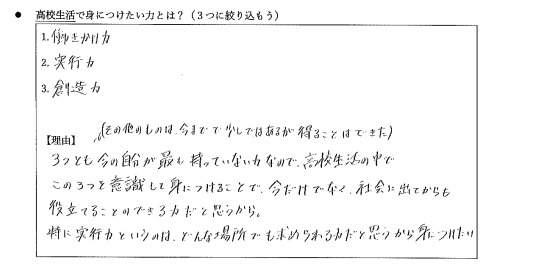 ● 高校生活で身につけたい力とは？（３つに絞り込もう）
1. 働きかけ力
2. 実行力
3. 創造力
(その他のものは、今までで少しではあるが得ることはできた)
【理由】
3つとも今の自分が最も持っていない力なので、高校生活の中で
この3つを意識して身につけることで、今だけでなく、社会に出てからも
役立てることのできる力だと思うから。
特に実行力というのは、どんな場所でも求められる力だと思うから身につけたい